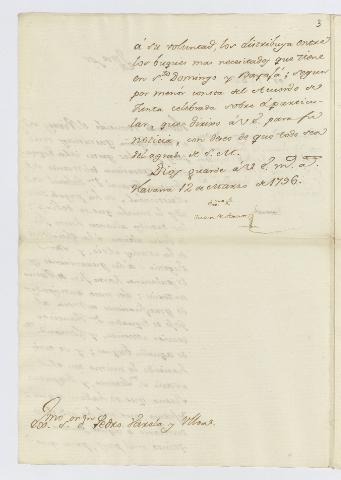 3
á su voluntad, los distribuya entre
los buques mas necesitados que tiene
en Sto Domingo y Bayajá; segun
por menor consta del Acuerdo de
Junta celebrada sobre el particu-
lar, que dirixo á V.E. para su
noticia, con deseo de que todo sea
del agrado de S. M.
Dios guarde á V.E. m.s a.s
Havana 12 de Marzo de 1796.
Exmo. Sor.
Juan de Araoz
Exmo. Sor. Dn. Pedro Varela y Ulloa.